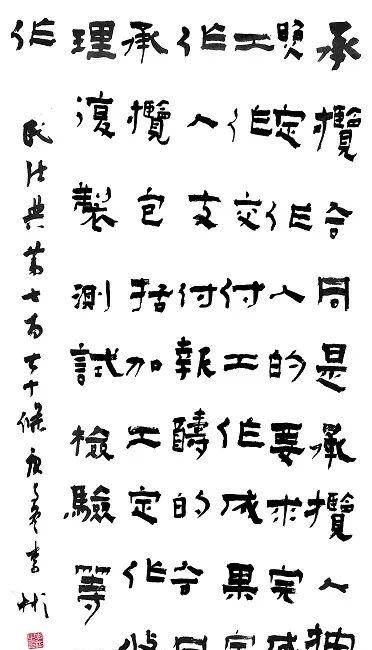 承攬合同是承攬人按
照定作人的要求完成
工作交付工作成果定
作人支付報醻的合同
承攬包括加工定作修
理復製測試檢驗等
作
民法典第七百七十條 庚子冬李彬